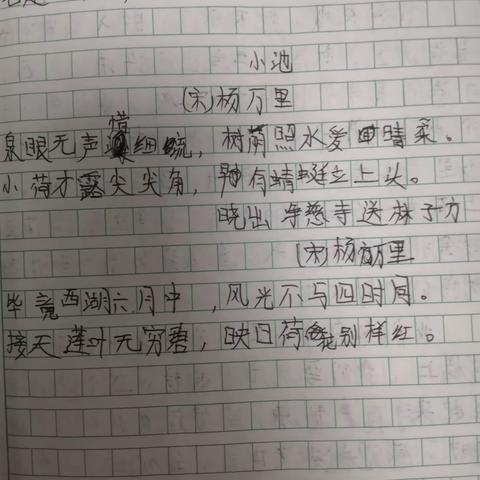 小池
(宋)杨万里
泉眼无声惜细流，树荫照水爱晴柔。
小荷才露尖尖角，有蜻蜓立上头。
晓出净慈寺送林子方
(宋)杨万里
毕竟西湖六月中，风光不与四时同。
接天莲叶无穷碧，映日荷花别样红。